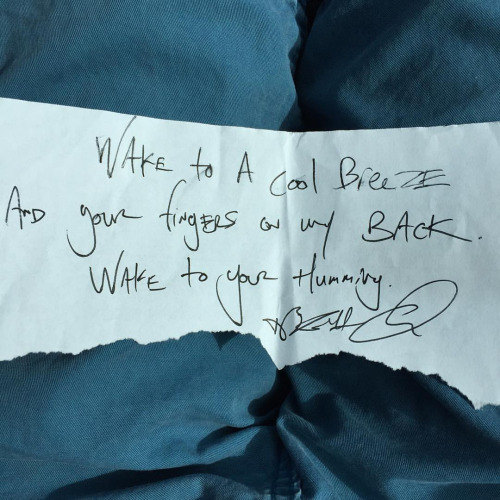 WAKE to A Cool BREEZE
AND your fingers on my BACK.
WAKE to your Humming.